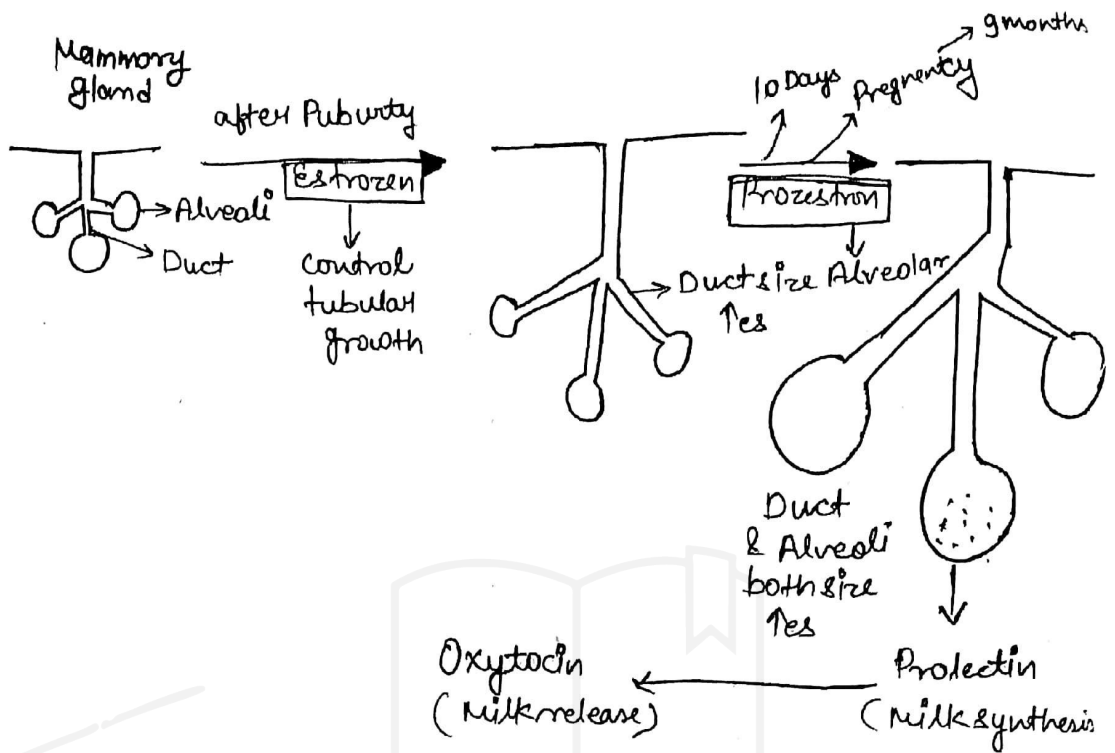 Mammory
gland
after Puburty
Estrozen
control
tubular
growth
Alveoli
Duct
10 Days
Pregnenty
9months
Prozestron
Duct size
↑es
Alveolar
Duct
& Alveoli
both size
↑es
Prolectin
(Milk synthesis
Oxytocin
(Milk release)